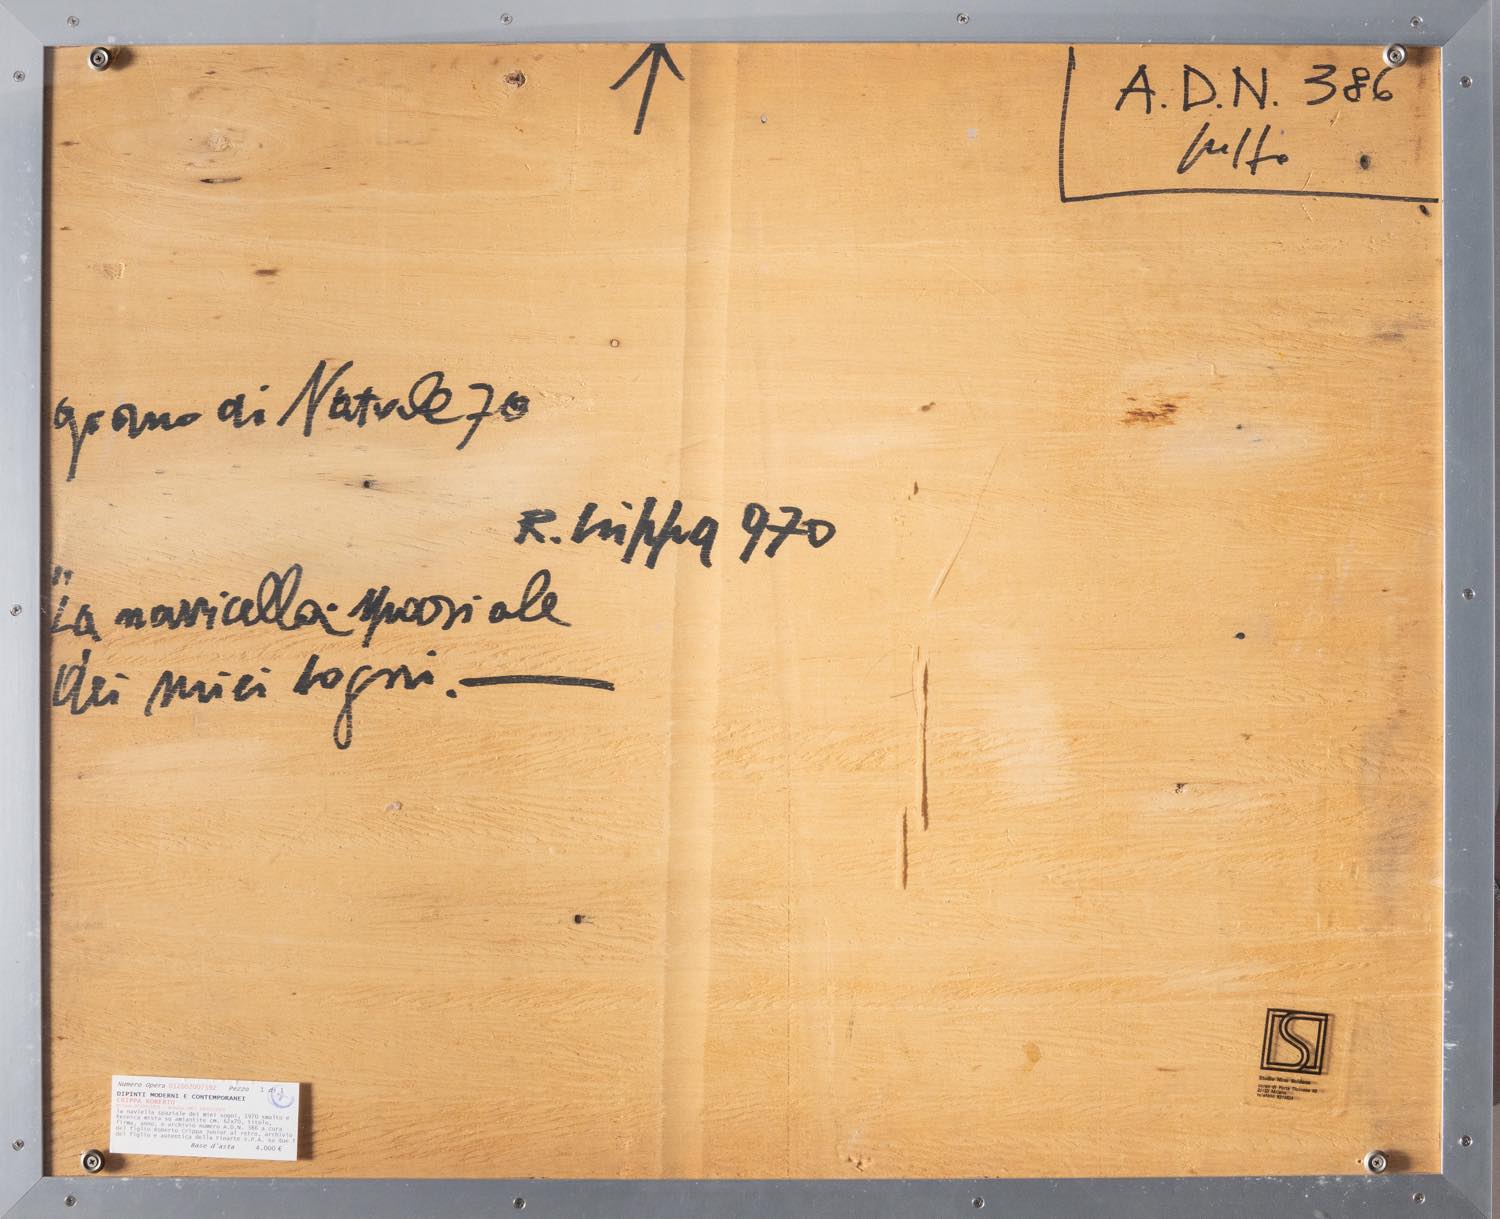 A.D.N. 386
giorno di Natale 70
R. Crippa 970
"La navicella spaziale
dei miei sogni.
Studio Nino Soldano
Numero Opera Pezzo 1 di 1
DIPINTI MODERNI E CONTEMPORANEI
CRIPPA ROBERTO
la naviella spaziale dei miei sogni, 1970 smalto e
tecnica mista su amiantite cm. 62x75, titolo,
firma, anno, e archivio numero A.D.N. 386 a cura
del figlio Roberto Crippa Junior al retro, archivio
del figlio e autentica della Finarte s.P.A. su due f
Base d'asta 4.000 €